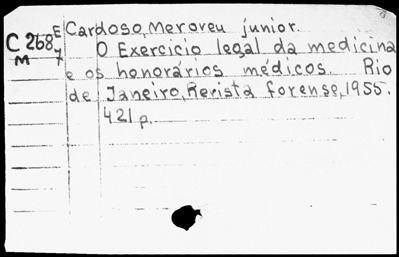 C 268 E Cardoso, Meroveu junior.
M 7 O Exercicio legal da medicina
e os honorários médicos. Rio
de Janeiro, Revista forense, 1955.
421 p.